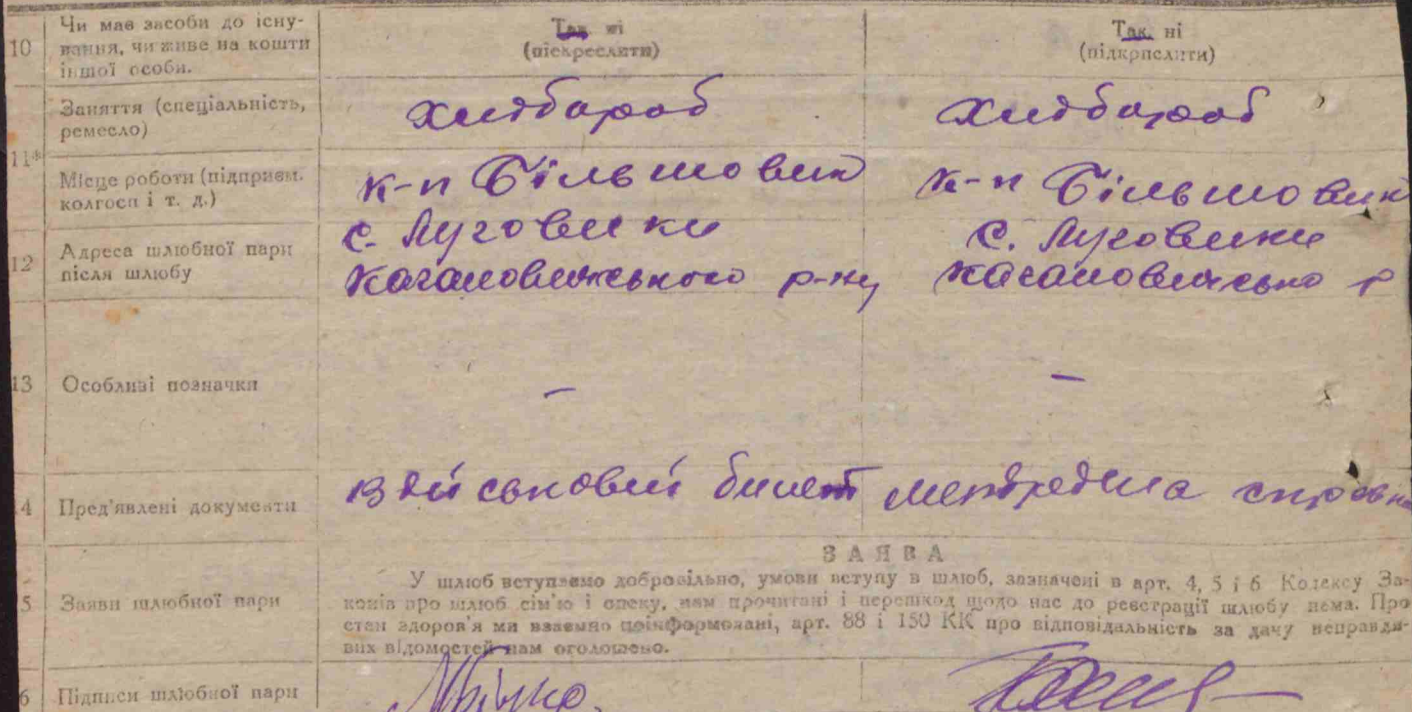 10 Чи має засоби до існу-
вання, чи живе на кошти
іншої особи.
Так ні
(підкреслити)
Так, ні
(підкрпслити)
11* Заняття (спеціальність,
ремесло)
Хлібороб
Хлібороб
Місце роботи (підприєм.
колгосп і т. д.)
к-п Більшовик
к-п Більшовик
12 Адреса шлюбної пари
після шлюбу
с. Луговики
Кагановичського р-ну
с. Луговики
Кагановичсько р
13 Особливі позначки
–
–
4 Пред'явлені документи
Військовий билет
справк
5 Заяви шлюбної пари
ЗАЯВА
У шлюб вступаємо добровільно, умови вступу в шлюб, зазначені в арт. 4, 5 і 6 Кодексу За-
конів про шлюб сім'ю і опеку, нам прочитані і перешкод щодо нас до реєстрації шлюбу нема. Про
стан здоров'я ми взаємно поінформовані, арт. 88 і 150 КК про відповідальність за дачу неправди-
вих відомостей нам оголошено.
6 Підписи шлюбної пари